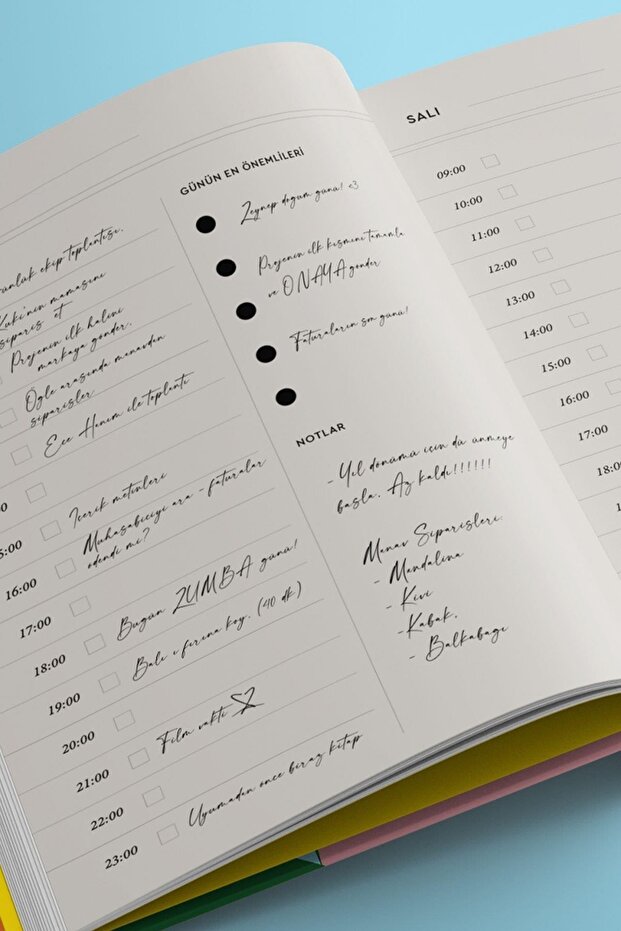 günlük ekip toplantısı.
Kuki'nin mamasını
sipariş et
Projenin ilk halini
markaya gönder.
Öğle arasında manavdan
siparişler
Ece Hanım ile toplantı
İçerik metinleri
Muhasebeciyi ara - faturalar
ödendi mi?
16:00
17:00
Bugün ZUMBA günü!
18:00
Balı ı fırına koy. (40 dk)
19:00
20:00
Film vakti
21:00
22:00
Uyumadan önce biraz kitap
23:00
GÜNÜN EN ÖNEMLİLERİ
Zeynep doğum günü! <3
Projenin ilk kısmını tamamla
ve ONAYA gönder
Faturaların son günü!
NOTLAR
- Yıl dönümü için dü ünmeye
başla. Az kaldı!!!!!!
Manav Siparişleri:
- Mandalina
- Kivi
- Kabak,
- Balkabağı
SALI
09:00
10:00
11:00
12:00
13:00
14:00
15:00
16:00
17:00